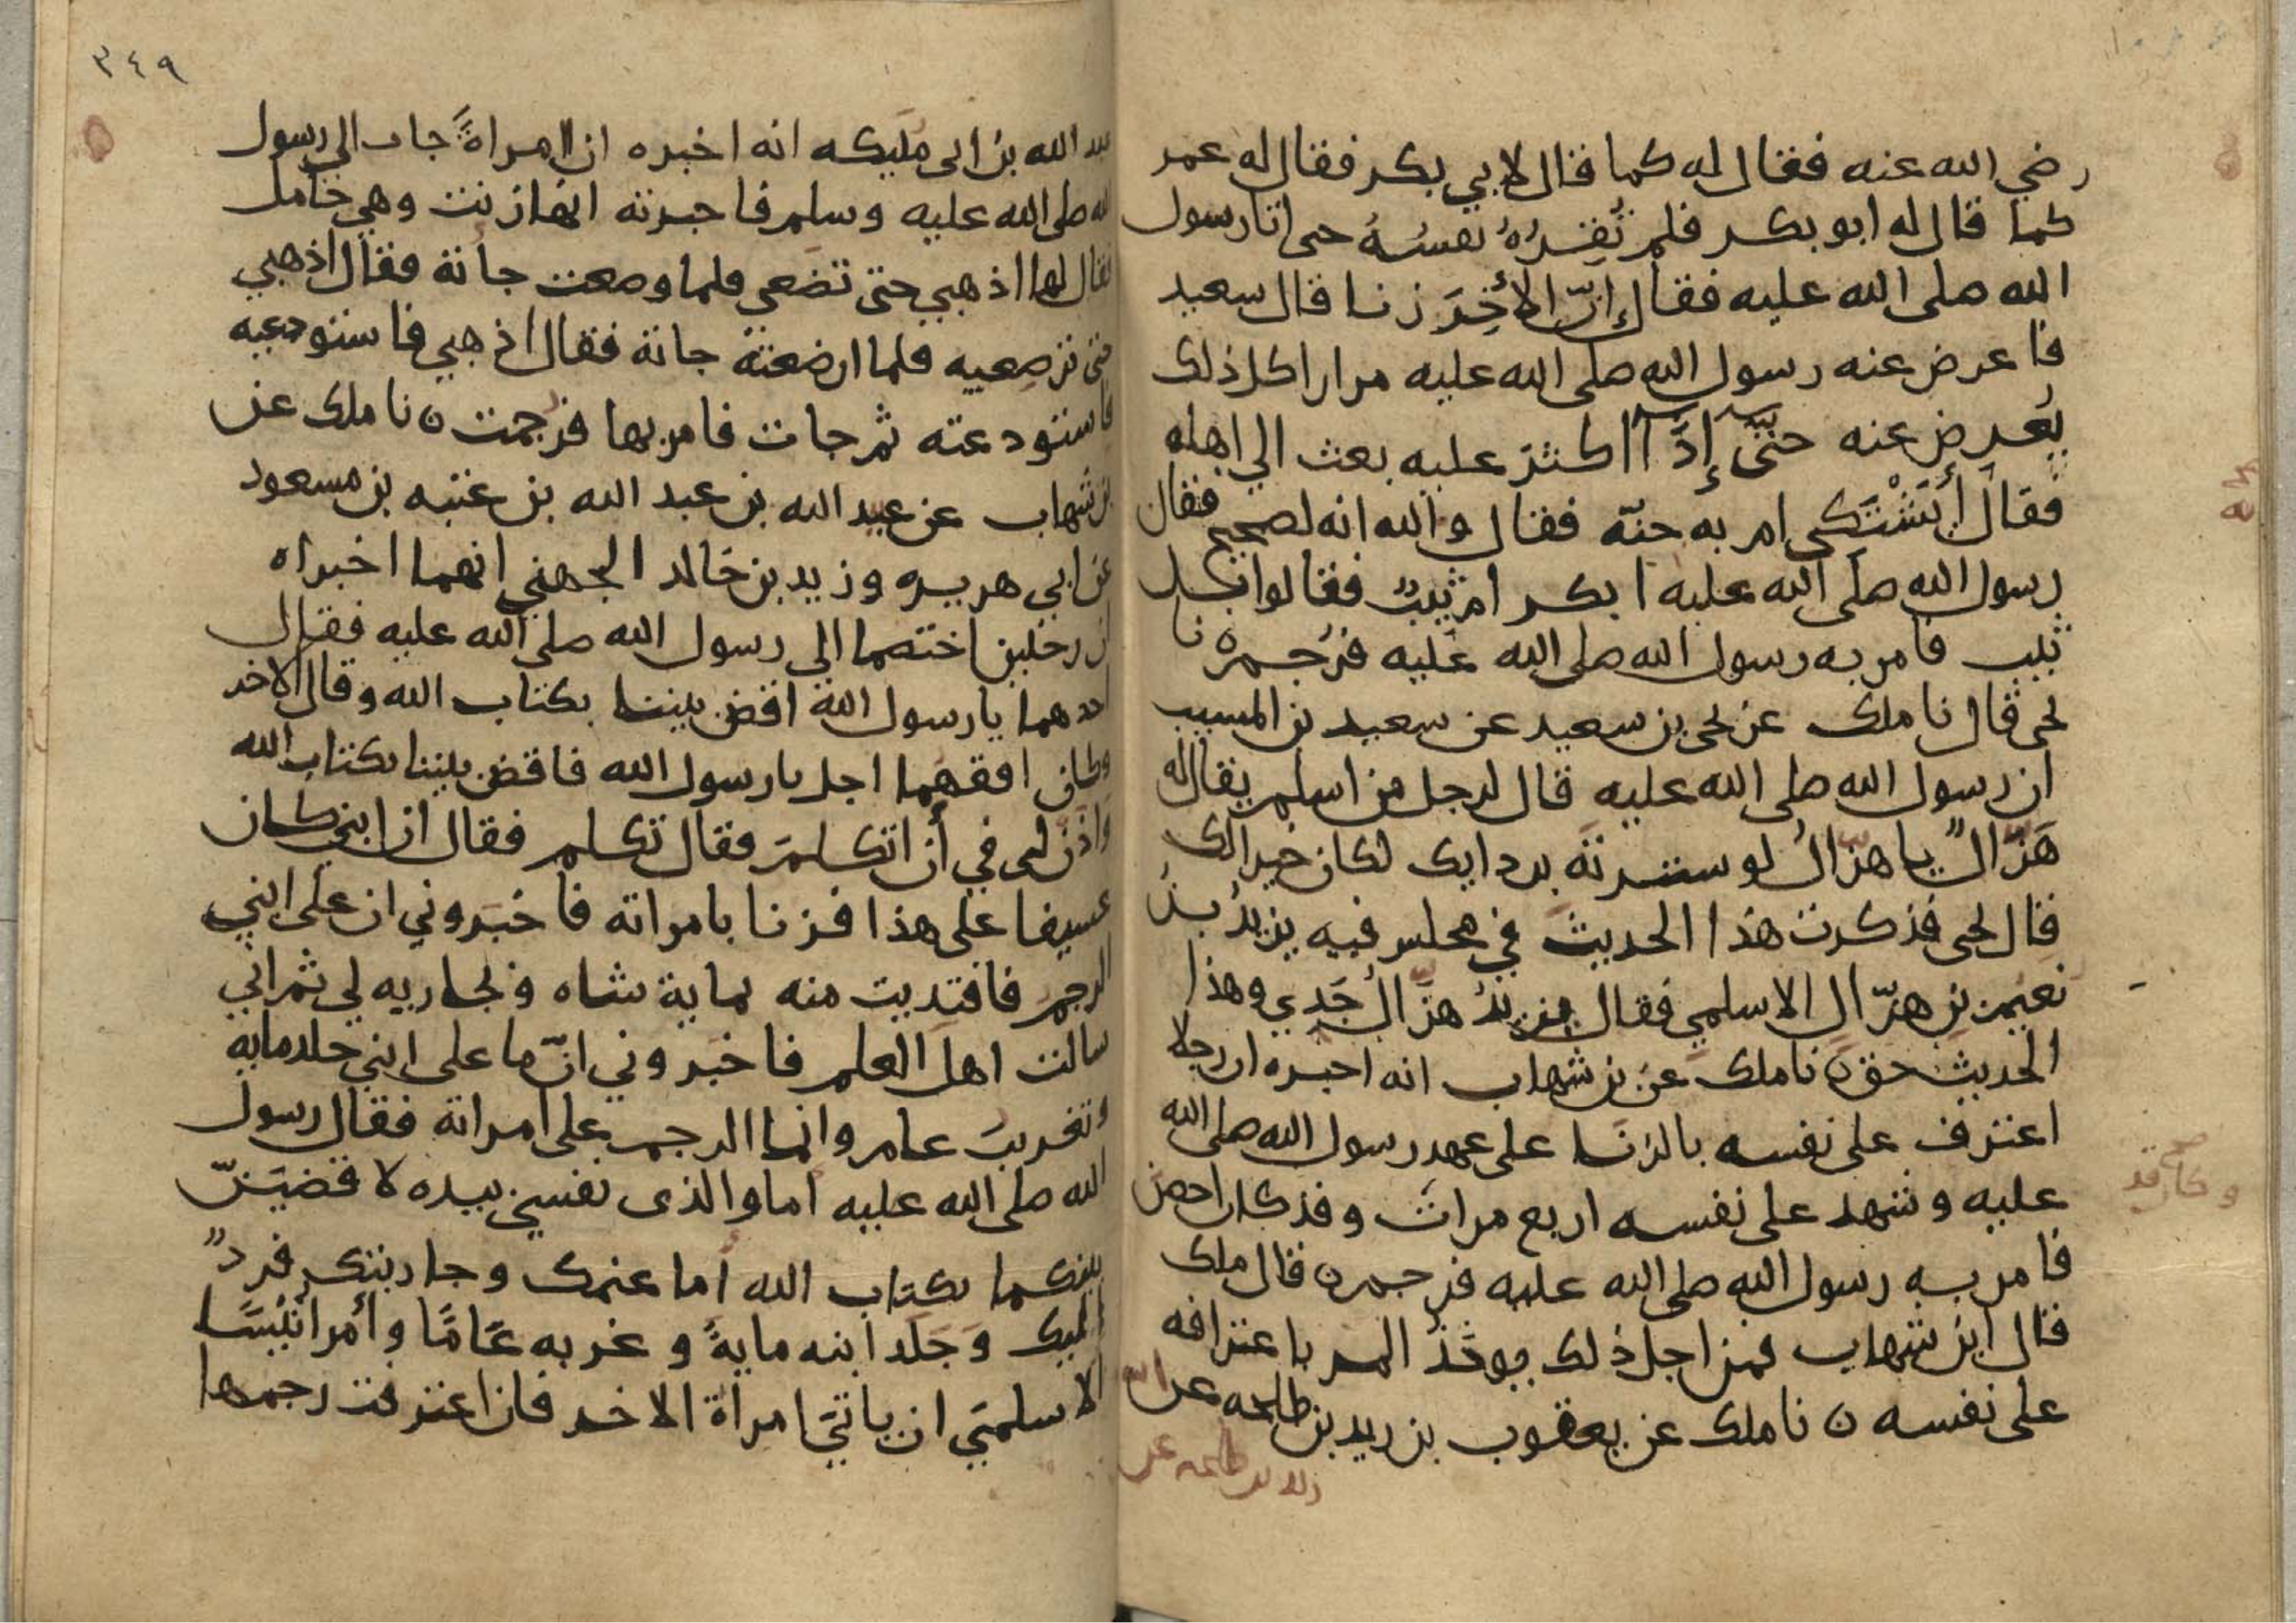 رضي الله عنه فقال له كما قال لابي بكر فقال له عمر
كما قال له ابو بكر فلم تُقِرُهُ نفسُهُ حتى اتا رسول
الله صلى الله عليه فقال إنّ الأخِرَ زنا قال سعيد
فاعرض عنه رسول الله صلى الله عليه مرارا كل ذلك
يُعرِض عنه حتىّ إذَآ اكثرَ عليه بعث الي اهله
فقال أيَشْتَكي ام به جنّه فقال والله انه لصحيح فقال
رسول الله صلى الله عليه ابكر ام ثيبٌ فقالوا بل
ثيب فامر به رسول الله صلى الله عليه فرُجم ه نا
يحى قال نا ملك عن يحى بن سعيد عن سعيد بن المسيب
ان رسول الله صلى الله عليه قال لرجل من اسلم يقال له
هَزّالٌ يا هزّالُ لو سترته بردايك لكان خيرا لك
قال يحى فذكرت هذا الحديث في مجلس فيه يزيدُ بنُ
نعيم بن هزّال الاسلمي فقال يزيدُ هزّالُ جَدِي وهذا
الحديث حق ه نا ملك عن بن شهاب انه اخبره ان رجلا
اعترف على نفسه بالزنا على عهد رسول الله صلى الله
عليه وشهد على نفسه اربع مرات وقد كان احصن
صح
وكان قد
فامر به رسول الله صلى الله عليه فرجم ه قال ملك
قال ابن شهاب فمن اجل ذلك يوخذ المر باعترافه
على نفسه ه نا ملك عن يعقوب بن زيد بن طلحه عن
زيد بن طلحه عن
٣٤٩
عبد الله بن ابى مليكه انه اخبره ان امراةً جات الي رسول
الله صلى الله عليه وسلم فاخبرته انها زنت وهي حامل
فقال لها اذهبي حتى تضعي فلما وضعت جاته فقال اذهبي
حتى ترضعيه فلما ارضعته جاته فقال اذهبي فاستودعيه
فاستودعته ثم جات فامر بها فرجمت ه نا ملك عن
بن شهاب عن عبيد الله بن عبد الله بن عتبه بن مسعود
عن ابي هريره وزيد بن خالد الجهني انهما اخبراه
ان رجلين اختصما الي رسول الله صلى الله عليه فقال
احدهما يا رسول الله اقض بيننا بكتاب الله وقال الاخر
وكان افقههما اجل يا رسول الله فاقض بيننا بكتاب الله
واذن لي في أن اتكلمَ فقال تكلم فقال ان ابني كان
عسيفا على هذا فزنا بامراته فاخبَروني ان على ابني
الرجم فافتديت منه بماية شاه وبجاريه لي ثم اني
سالت اهل العلم فاخبروني انّ ما على ابني جلد مايه
وتغريبَ عام وانما الرجم على امراته فقال رسول
الله صلى الله عليه أما والذى نفسي بيده لاقضيَنّ
بينكما بكتاب الله أما غنمك وجاريتك فردٌ
اليك وَجَلَد ابنه مايةً وغربه عَامًا وأمر أنَيْسًا
الاسلميَ ان ياتيَ امرأة الاخر فان اعترفت رجمها